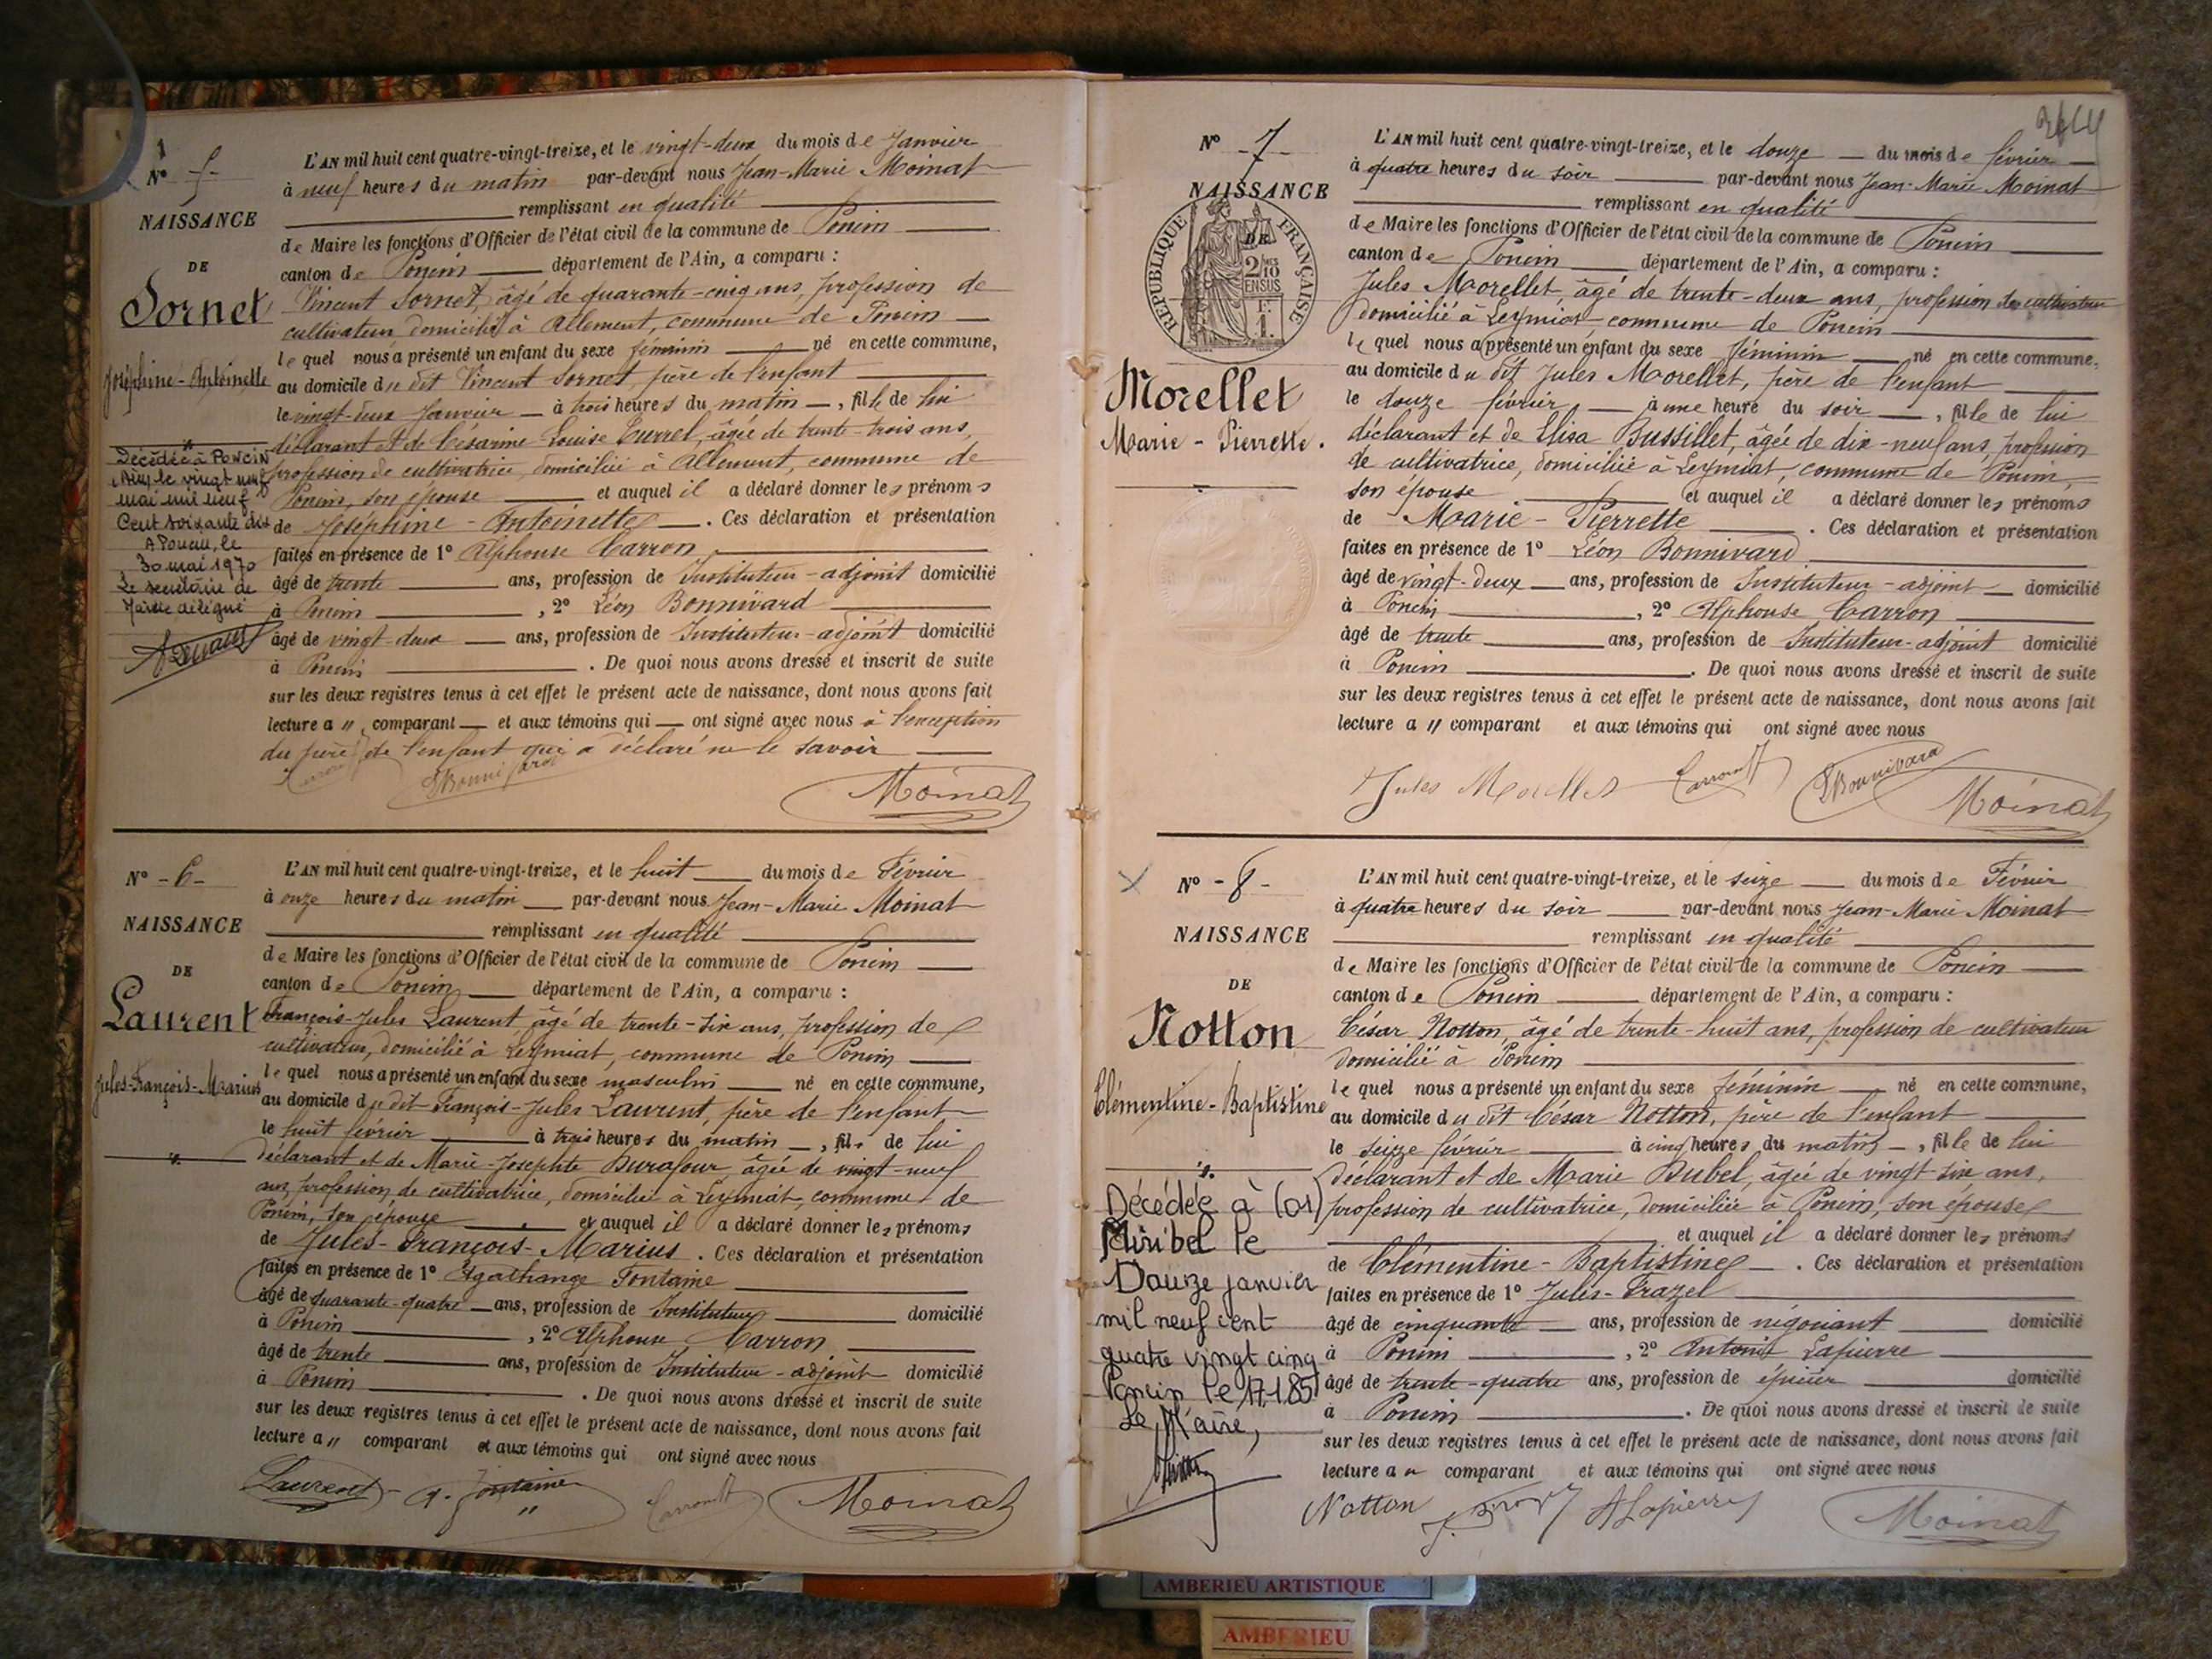 Nº -5-
NAISSANCE
DE
Sornet
Joséphine-Antoinette
Décédée à PONCIN
(Ain) le vingt neuf
mai mil neuf
Cent soixante dix
A Poncin, le
30 mai 1970
Le secrétaire de
Mairie délégué
L'AN mil huit cent quatre-vingt-treize, et le vingt-deux du mois de Janvier
à neuf heures du matin par-devant nous Jean-Marie Moinat
remplissant en qualité
de Maire les fonctions d'Officier de l'état civil de la commune de Poncin
canton de Poncin département de l'Ain, a comparu :
Vincent Sornet, âgé de quarante-cinq ans, profession de
cultivateur domicilié à Allement, commune de Poncin
lequel nous a présenté un enfant du sexe féminin né en cette commune,
au domicile du dit Vincent Sornet, père de l'enfant
le vingt-deux Janvier à trois heures du matin, fille de lui
déclarant et de Césarine-Louise Curvel, âgée de trente-trois ans,
profession de cultivatrice, domiciliée à Allement, commune de
Poncin, son épouse et auquel il a déclaré donner les prénoms
de Joséphine-Antoinette. Ces déclaration et présentation
faites en présence de 1º Alphonse Carron
âgé de trente ans, profession de Instituteur-adjoint domicilié
à Poncin, 2º Léon Bonnivard
âgé de vingt-deux ans, profession de Instituteur-adjoint domicilié
à Poncin. De quoi nous avons dressé et inscrit de suite
sur les deux registres tenus à cet effet le présent acte de naissance, dont nous avons fait
lecture a " comparant et aux témoins qui ont signé avec nous à l'exception
du père de l'enfant qui a déclaré ne le savoir
LBonnivard
Moinat
Nº -6-
NAISSANCE
DE
Laurent
Jules-François-Marius
L'AN mil huit cent quatre-vingt-treize, et le huit du mois de Février
à onze heures du matin par-devant nous Jean-Marie Moinat
remplissant en qualité
de Maire les fonctions d'Officier de l'état civil de la commune de Poncin
canton de Poncin département de l'Ain, a comparu :
François-Jules Laurent, âgé de trente-six ans, profession de
cultivateur, domicilié à Leymiat, commune de Poncin
lequel nous a présenté un enfant du sexe masculin né en cette commune,
au domicile du dit François-Jules Laurent, père de l'enfant
le huit février à trois heures du matin, fils de lui
déclarant et de Marie-Josephte Durafour âgée de vingt-neuf
ans, profession de cultivatrice, domiciliée à Leymiat, commune de
Poncin, son épouse et auquel il a déclaré donner les prénoms
de Jules-François-Marius. Ces déclaration et présentation
faites en présence de 1º Agathange Fontaine
âgé de quarante-quatre ans, profession de Instituteur domicilié
à Poncin, 2º Alphonse Carron
âgé de trente ans, profession de Instituteur-adjoint domicilié
à Poncin. De quoi nous avons dressé et inscrit de suite
sur les deux registres tenus à cet effet le présent acte de naissance, dont nous avons fait
lecture a " comparant et aux témoins qui ont signé avec nous
Laurent A. Fontaine Carron Moinat
Nº -7-
NAISSANCE
DE
RÉPUBLIQUE FRANÇAISE
2/10 EN SUS
1 F.
Morellet
Marie-Pierrette.
L'AN mil huit cent quatre-vingt-treize, et le douze du mois de février
à quatre heures du soir par-devant nous Jean-Marie Moinat
remplissant en qualité
de Maire les fonctions d'Officier de l'état civil de la commune de Poncin
canton de Poncin département de l'Ain, a comparu :
Jules Morellet, âgé de trente-deux ans, profession de cultivateur
domicilié à Leymiat commune de Poncin
lequel nous a présenté un enfant du sexe féminin né en cette commune,
au domicile du dit Jules Morellet, père de l'enfant
le douze février à une heure du soir, fille de lui
déclarant et de Elisa Bussillet, âgée de dix-neuf ans, profession
de cultivatrice, domiciliée à Leymiat, commune de Poncin,
son épouse et auquel il a déclaré donner les prénoms
de Marie-Pierrette. Ces déclaration et présentation
faites en présence de 1º Léon Bonnivard
âgé de vingt-deux ans, profession de Instituteur-adjoint domicilié
à Poncin, 2º Alphonse Carron
âgé de trente ans, profession de Instituteur-adjoint domicilié
à Poncin. De quoi nous avons dressé et inscrit de suite
sur les deux registres tenus à cet effet le présent acte de naissance, dont nous avons fait
lecture a " comparant et aux témoins qui ont signé avec nous
Jules Morellet Carron LBonnivard Moinat
Nº -8-
NAISSANCE
DE
Notton
Clémentine-Baptistine
Décédée à (01)
Miribel le
Douze janvier
mil neuf cent
quatre vingt cinq
Poncin le 17.1.85
Le Maire,
L'AN mil huit cent quatre-vingt-treize, et le seize du mois de Février
à quatre heures du soir par-devant nous Jean-Marie Moinat
remplissant en qualité
de Maire les fonctions d'Officier de l'état civil de la commune de Poncin
canton de Poncin département de l'Ain, a comparu :
César Notton, âgé de trente-huit ans, profession de cultivateur
domicilié à Poncin
lequel nous a présenté un enfant du sexe féminin né en cette commune,
au domicile du dit César Notton, père de l'enfant
le seize février à cinq heures du matin, fille de lui
déclarant et de Marie Dubel, âgée de vingt-six ans,
profession de cultivatrice, domiciliée à Poncin, son épouse
et auquel il a déclaré donner les prénoms
de Clémentine-Baptistine. Ces déclaration et présentation
faites en présence de 1º Jules
âgé de cinquante ans, profession de négociant domicilié
à Poncin, 2º Antonit Lapierre
âgé de trente-quatre ans, profession de épicier domicilié
à Poncin. De quoi nous avons dressé et inscrit de suite
sur les deux registres tenus à cet effet le présent acte de naissance, dont nous avons fait
lecture a " comparant et aux témoins qui ont signé avec nous
Notton ALapierre Moinat
AMBERIEU ARTISTIQUE
AMBERIEU